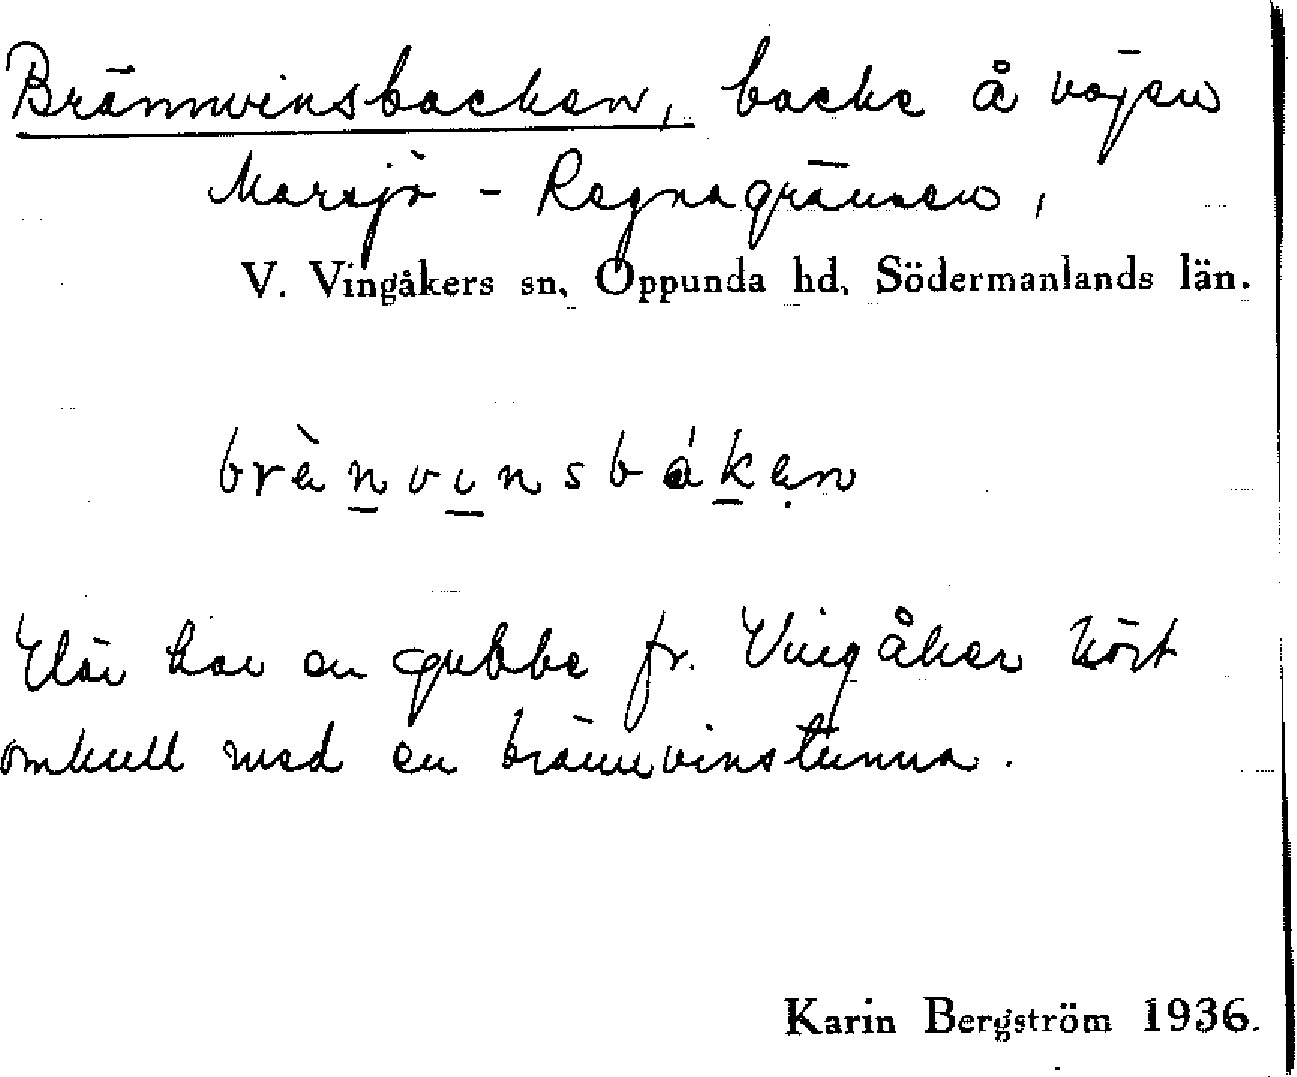 Brännvinsbacken, backe å vägen
Marsjö - Regnagränsen,
V. Vingåkers sn, Oppunda hd, Södermanlands län.
brànvinsbákən
Här har en gubbe fr. Vingåker kört
omkull med en brännvinstunna.
Karin Bergström 1936.